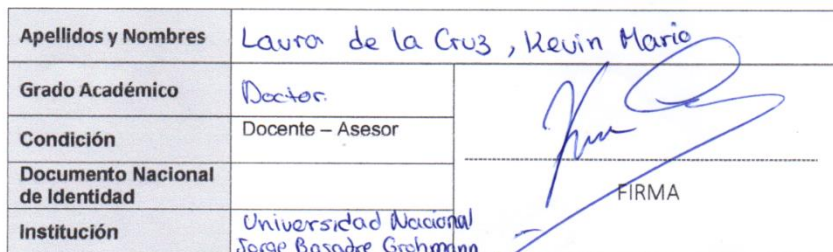 Apellidos y Nombres Laura de la Cruz, Kevin Mario
Grado Académico Doctor.
Condición Docente – Asesor
Documento Nacional
de Identidad
FIRMA
Institución Universidad Nacional
Jorge Basadre Grohmann